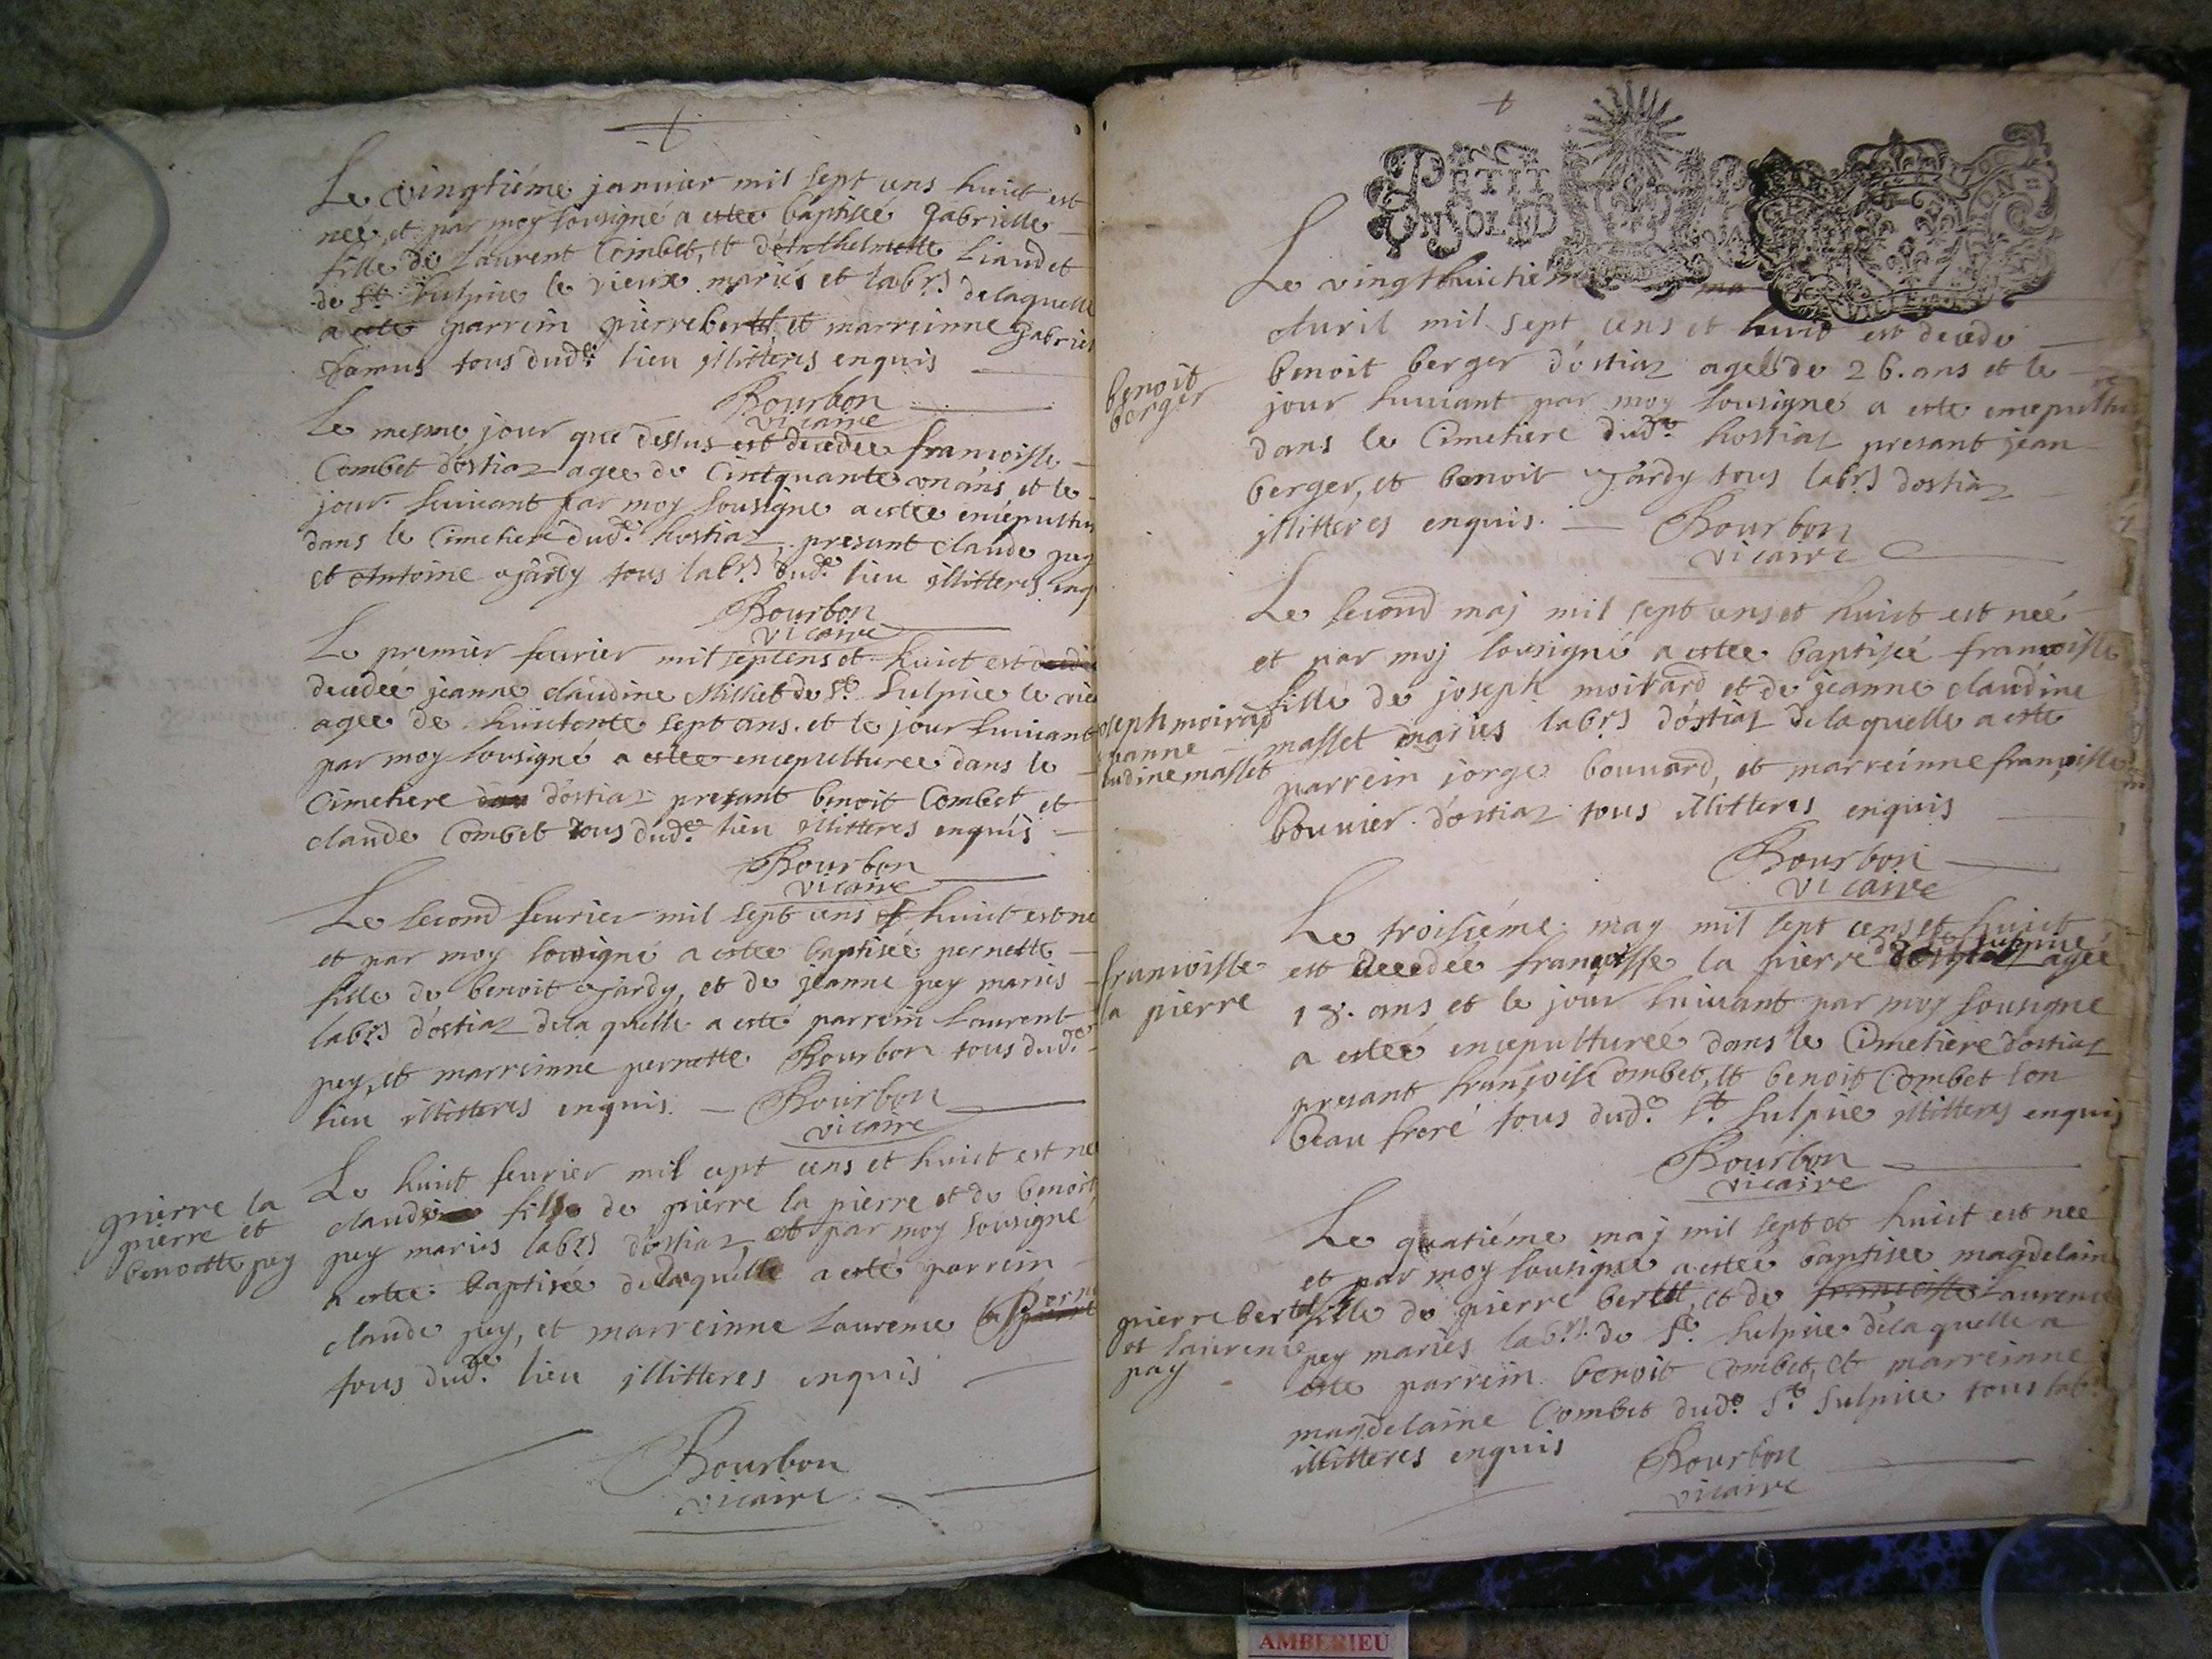 Le vingtiéme januier mil sept cens huict est
neé et par moy sousigné a estee baptiseé Gabrielle
fille de Laurent Combet, et d'Anthelmette Liaudet
de St. Sulpice le vieux mariés et labrs. delaquelle
a este parrein pierre bertet, et marreinne Gabriel
tous dude. lieu illitteres enquis
Bourbon
vicaire
Le mesme jour que dessus est decedee francoisse
Combet d'ostiaz agee de Cintquante un ans et le
jour suiuant par moy sousigne a estee encepultur
dans le Cimetiere dude. hostiaz, presant claude pey
et Antoine Jardy tous labrs. dude. lieu illitteres enq
Bourbon
vicaire
Le premier feurier mil sept cens et huict est
decedée jeanne claudine Milliet de St. Sulpice le vie
agee de huictente sept ans. et le jour suiuant
par moy sousigné a estee encepulturee dans le
Cimetiere d'ostiaz presant benoit Combet et
claude Combet tous dude. lieu illitteres enquis
Bourbon
vicaire
Le second feurier mil sept cens et huict est ne
et par moy sousigné a estee baptiseé pernette
fille de benoit Jardy, et de jeanne pey mariés
labrs d'ostiaz dela quelle a esté parrein Laurent
pey, et marreinne pernette Bourbon tous dude.
lieu illitteres enquis. Bourbon
vicaire
pierre la
pierre et
benoitte pey
Le huict feurier mil cept cens et huict est ne
claude fils de pierre la pierre et de benoit
pey mariés labrs d'ostiaz, et par moy sousigné
a estee baptisée delaquelle a esté parrein
claude pey, et marreinne Laurence
tous dude. lieu illitteres enquis
Bourbon
vicaire
PETIT
UN SOL LE D
Le vingthuictié
Auril mil sept cens et huict est decedé
benoit
berger
benoit berger d'ostiaz ageé de 26. ans et le
jour suiuant par moy sousigné a este encepultur
dans le Cimetiere dude. hostiaz presant jean
berger, et benoit Jardy tous labrs dostiaz
illitteres enquis. Bourbon
vicaire
Le second maj mil sept cens et huict est neé
et par moj sousigné a estee baptiseé francoisse
oseph moirard
eanne
udine masset
fille de joseph moirard et de jeanne claudine
masset mariés labrs d'ostiaz delaquelle a este
parrein jorge bouuard, et marreinne françoisse
bouuier d'ostiaz tous illitteres enquis
Bourbon
vicaire
francoisse
la pierre
Le troisiéme may mil sept cens et huict
est decedée françoisse la pierre de St. sulpice ageé
18. ans et le jour suiuant par moy sousigne
a esteé encepultureé dans le Cimetiere d'ostiaz
presant françois Combet, et benoit Combet son
beau frere tous dude. St. Sulpice illitteres enquis
Bourbon
vicaire
Le quatiéme maj mil sept et huict est neé
et par moy sousigné a estee baptisee magdelaine
pierre bertet
et laurence
pey
fille de pierre bertet, et de françoisse Laurence
pey mariés labrs. de St. Sulpice delaquelle a
este parrein benoit Combet, et marreinne
magdelaine Combet dude. St. Sulpice tous labr.
illitteres enquis Bourbon
vicaire
AMBERIEU